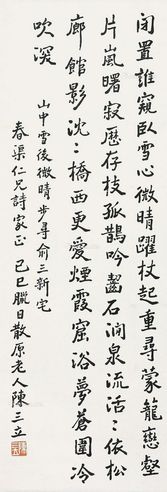 闭置誰窺臥雪心微晴躍杖起重尋蒙籠戀壑
片嵐曙寂歷存枝孤鵲吟齧石澗泉流活活依松
廊館影沈沈橋西更愛煙霞窟浴夢蒼圍冷
吹深
山中雪後微晴步尋俞三新宅
春渠仁兄詩家正 己巳臘日散原老人陳三立